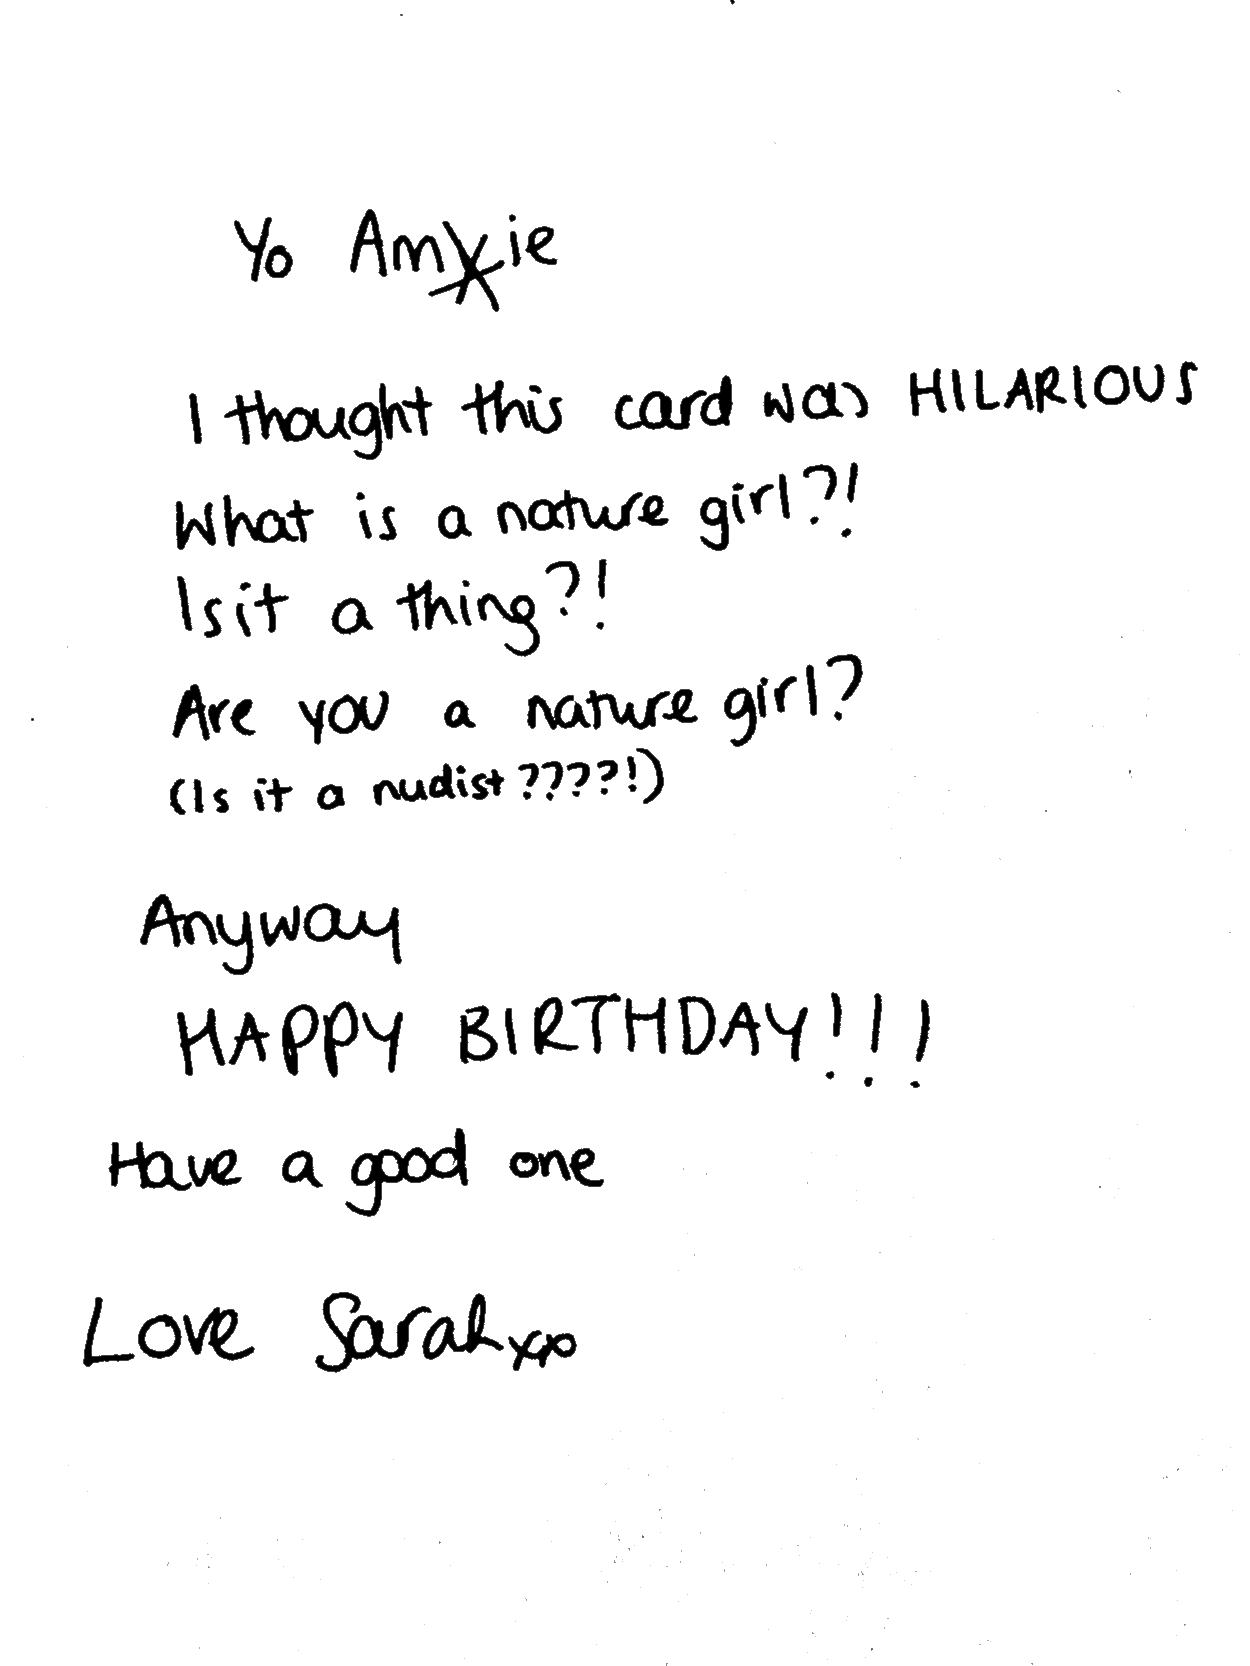 Yo Amie
I thought this card was HILARIOUS
What is a nature girl?!
Is it a thing?!
Are you a nature girl?
(Is it a nudist????!)
Anyway
HAPPY BIRTHDAY!!!
Have a good one
Love Sarah xxo